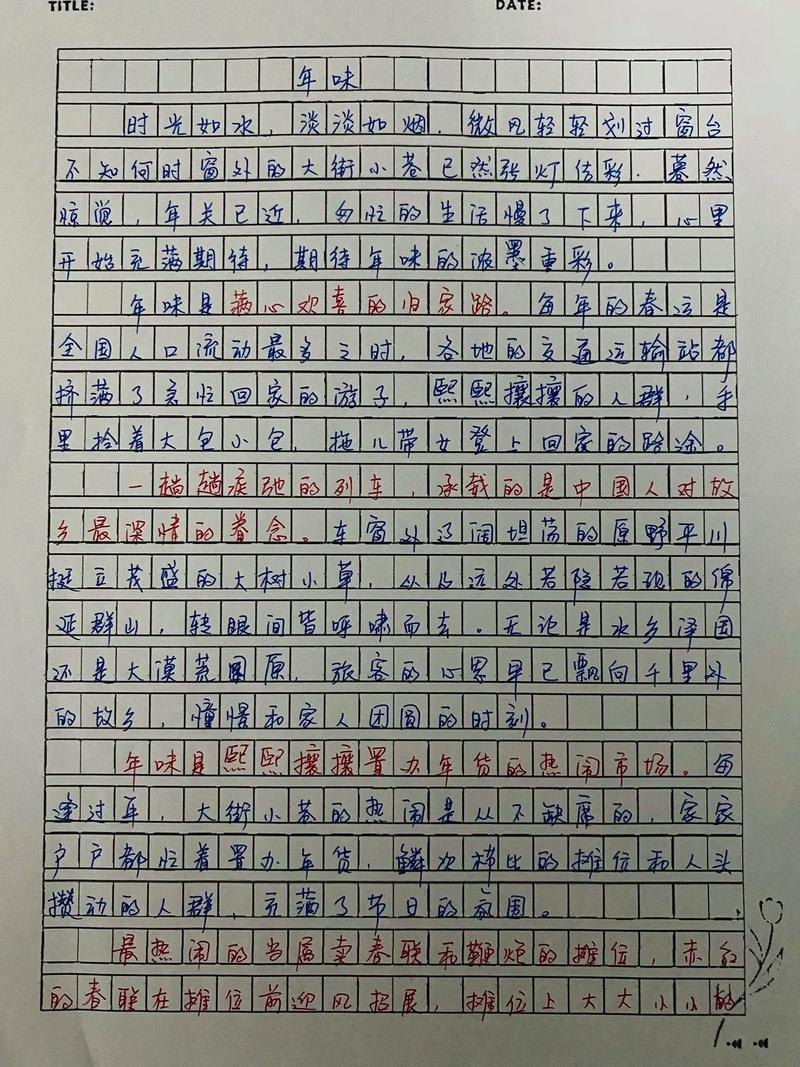 TITLE:
DATE:
年味
时光如水，淡淡如烟．微风轻轻划过窗台
不知何时窗外的大街小巷已然张灯结彩．蓦然
惊觉，年关已近，匆忙的生活慢了下来，心里
开始充满期待，期待年味的浓墨重彩。
年味是满心欢喜的归家路。每年的春运是
全国人口流动最多之时，各地的交通运输站都
挤满了急忙回家的游子，熙熙攘攘的人群，手
里拎着大包小包，拖儿带女登上回家的路途。
一趟趟疾驰的列车，承载的是中国人对故
乡最深情的眷念。车窗外辽阔坦荡的原野平川
挺立茂盛的大树小草，以及远处若隐若现的绵
延群山，转眼间皆呼啸而去。无论是水乡泽国
还是大漠荒原，旅客的心早已飘向千里外
的故乡，憧憬和家人团圆的时刻。
年味是熙熙攘攘置办年货的热闹市场。每
逢过年，大街小巷的热闹是从不缺席的，家家
户户都忙着置办年货，鳞次栉比的摊位和人头
攒动的人群，充满了节日的氛围。
最热闹的当属卖春联和鞭炮的摊位，赤红
的春联在摊位前迎风招展，摊位上大大小小的